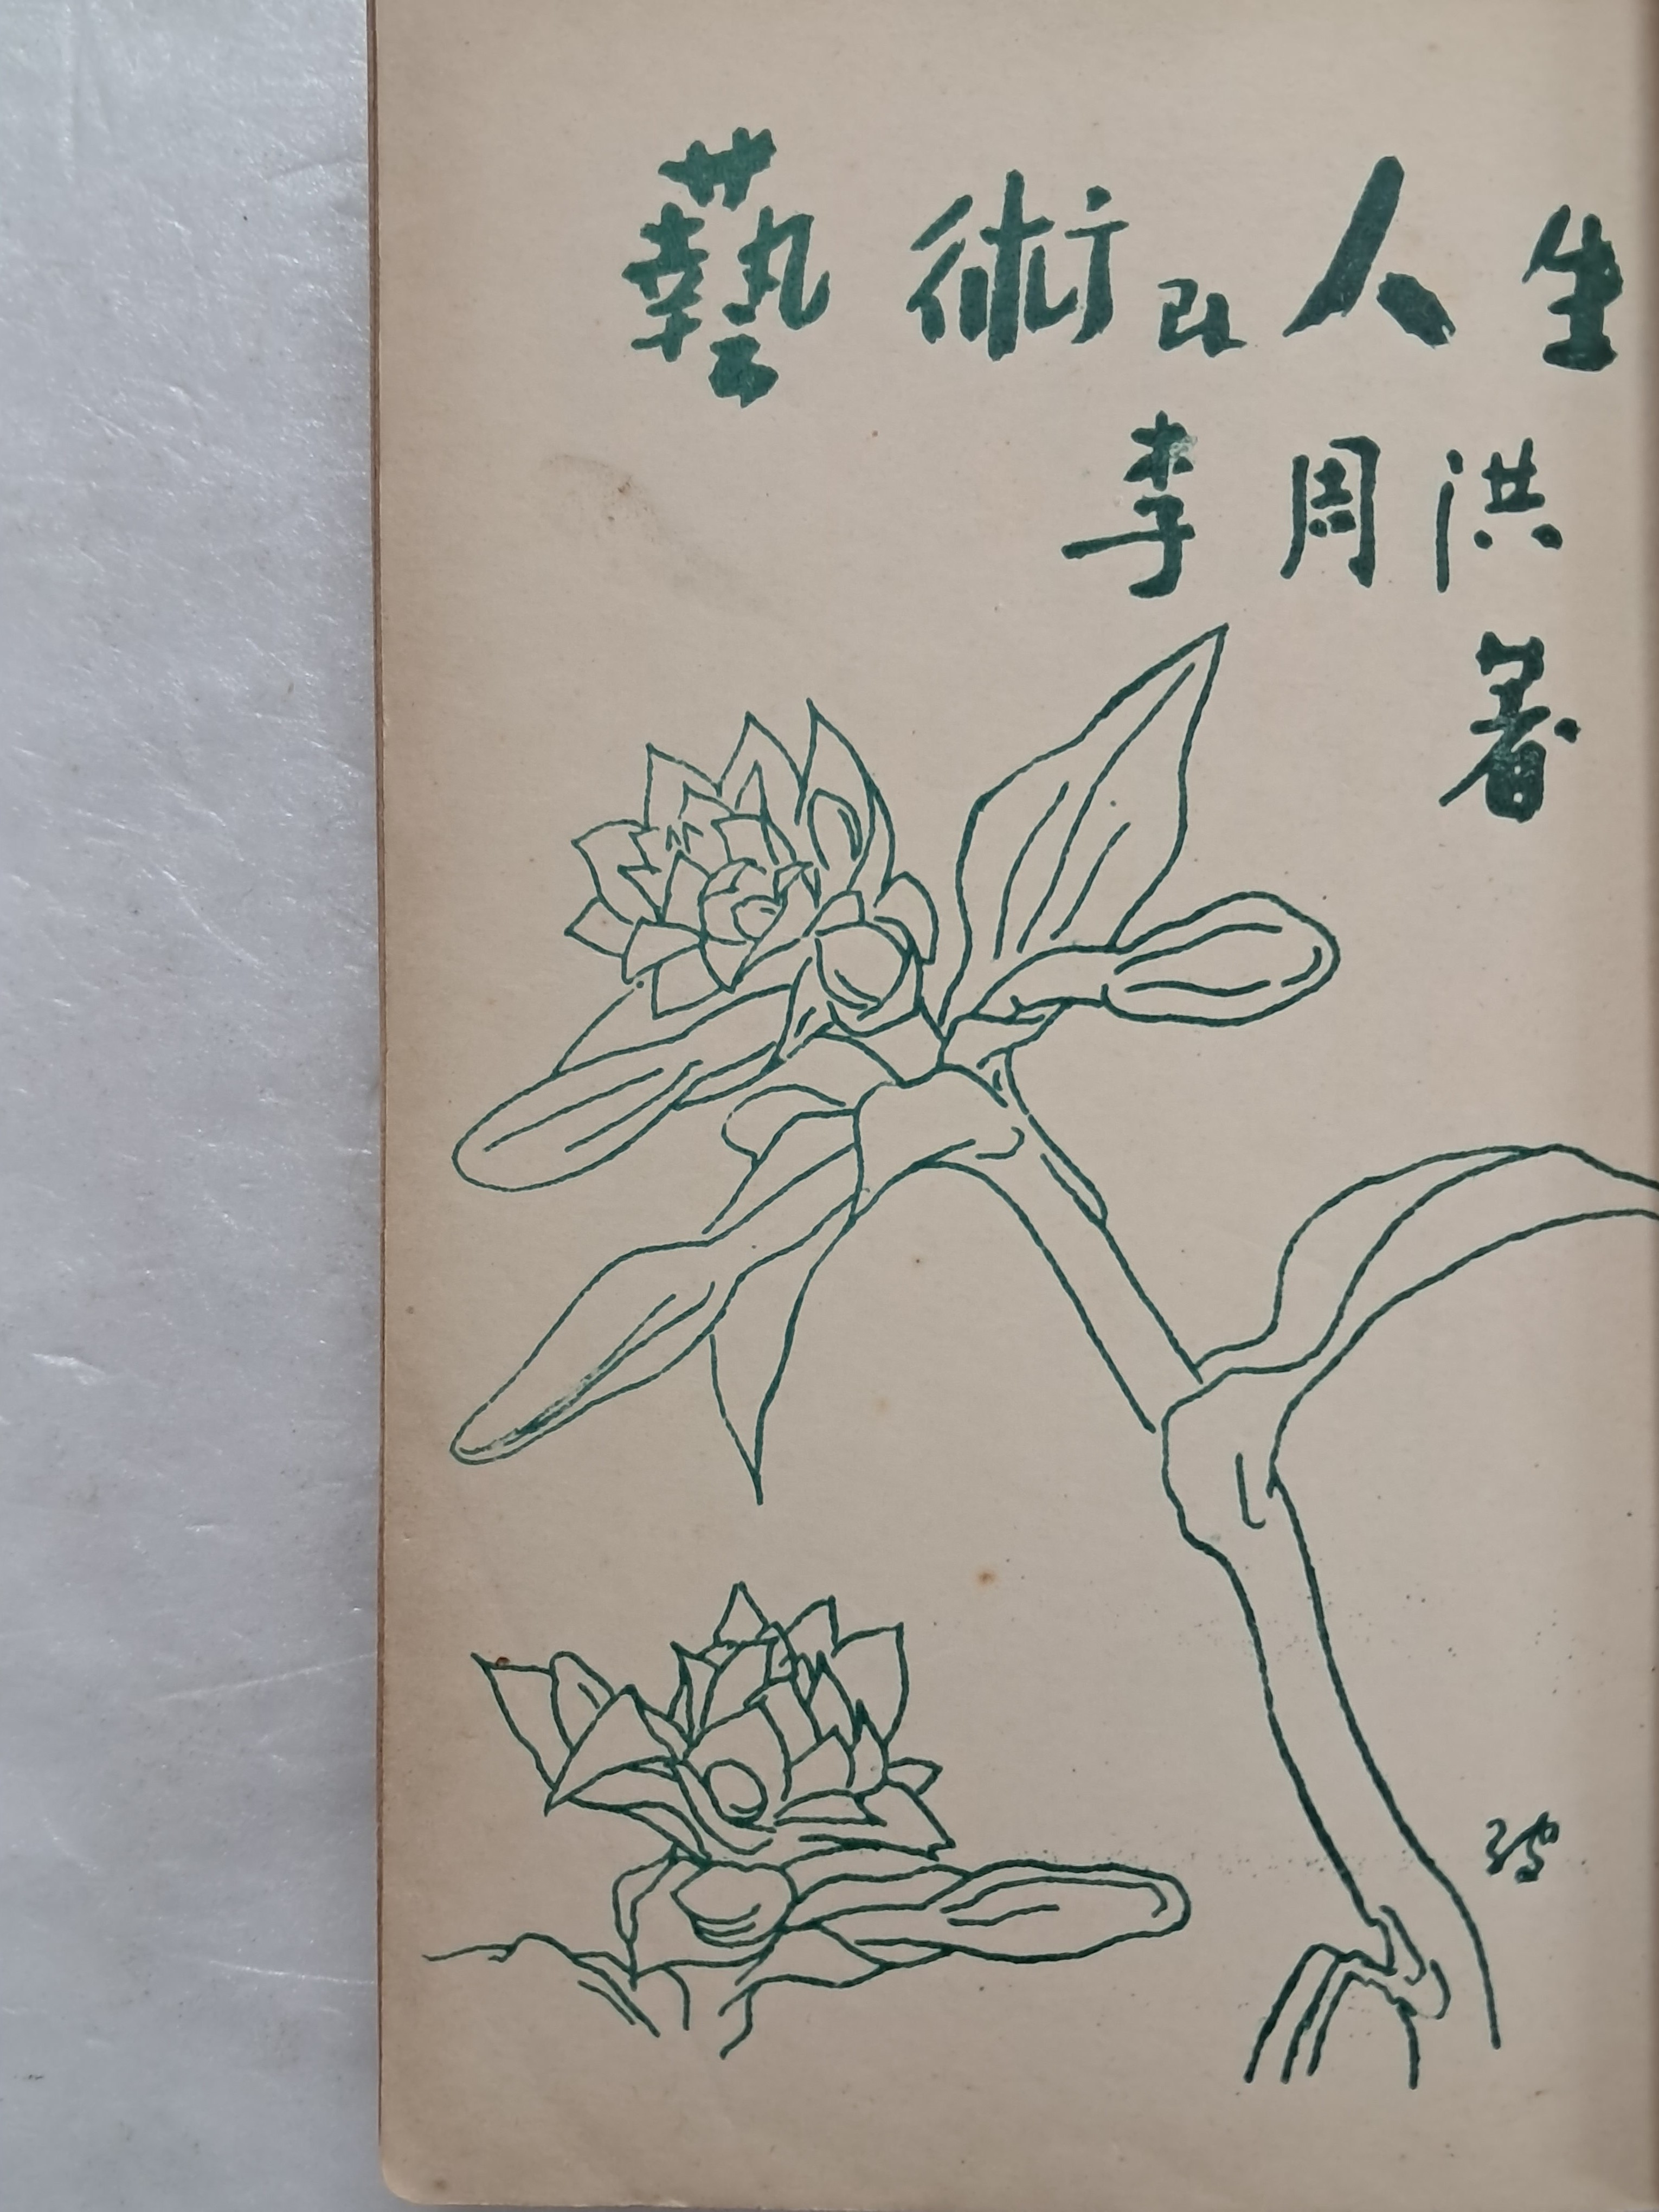 藝術과人生
李周洪
著